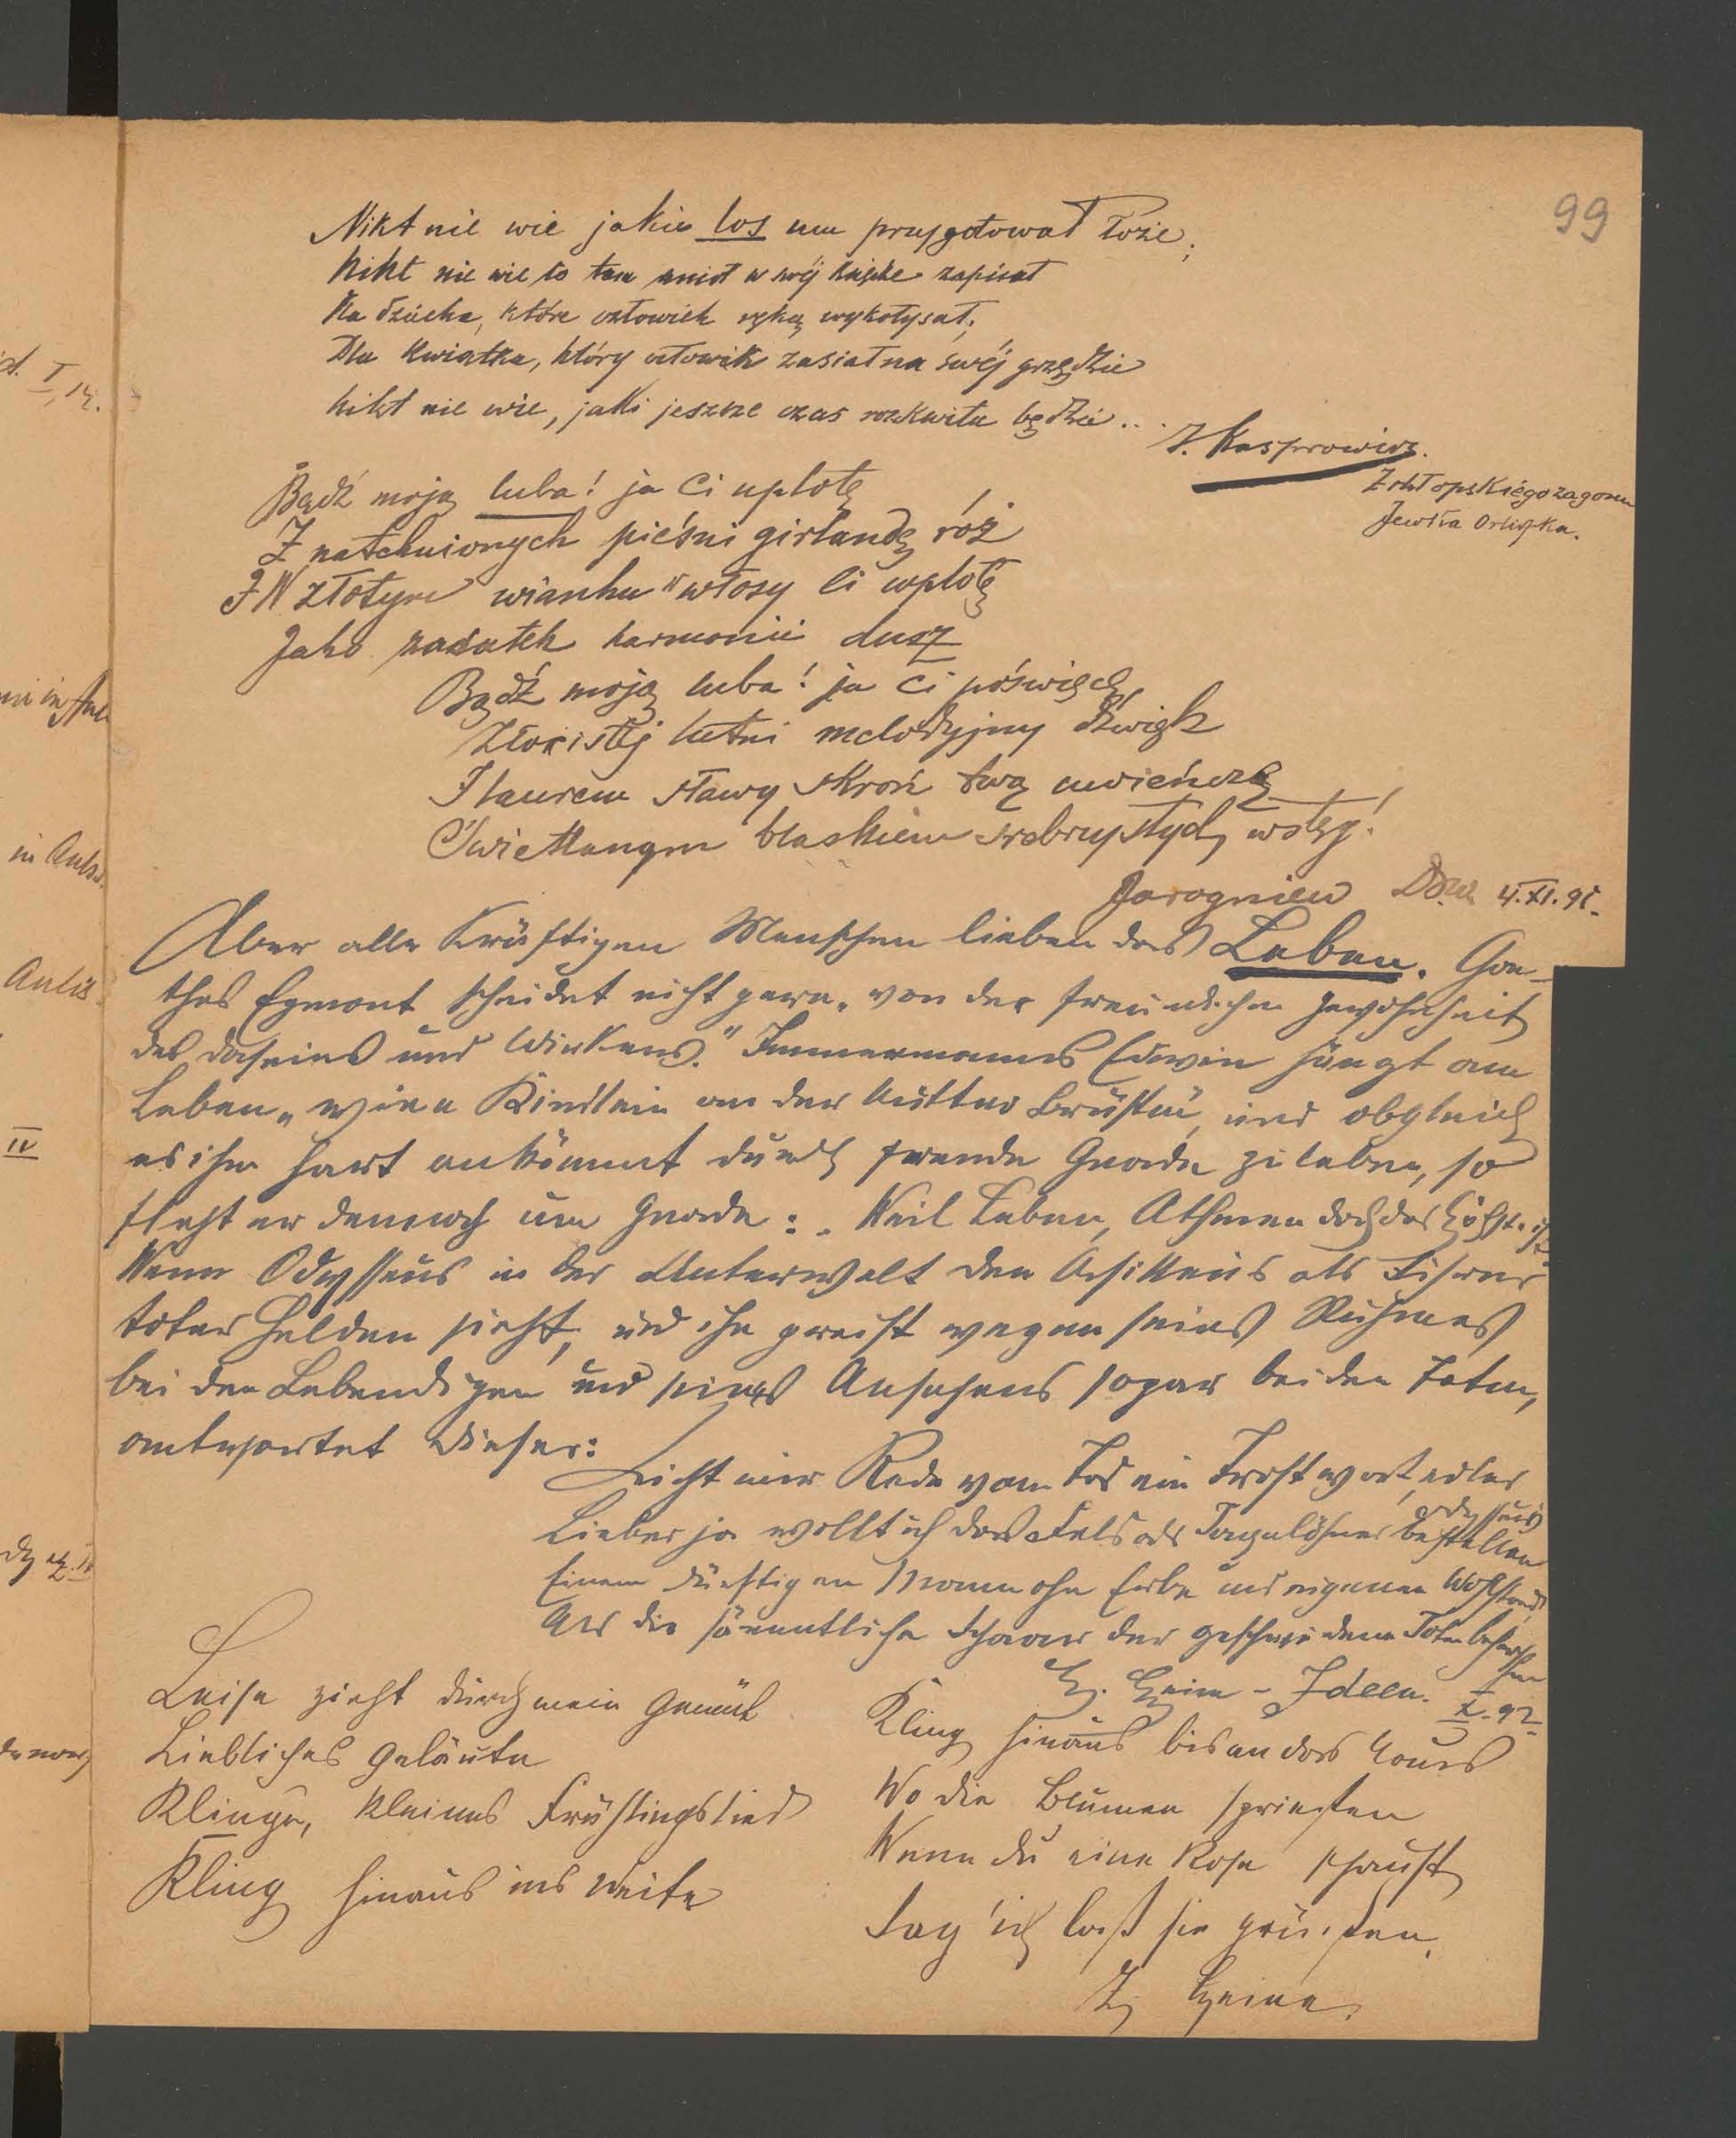 99
Nikt nie wie jakie los mu przygotował łoże;
Nikt nie wie co tam anioł w swéj książce zapisał
Na dziecka, które człowiek ręką wykołysał;
Dla kwiatka, który człowiek zasiał na swéj grzędzie
Nikt nie wie, jaki jeszcze czas rozkwitu będzie...
J. Kasprowicz.
Z chłopskiégo zagonu
Jewka Orliszka.
Bądź moją luba! ja Ci uplotę
Z natchnionych pieśni girlandę róż
I W złotym wianku włosy Ci wplotę
Jako zadatek harmonii dusz
Bądź moją luba! ja Ci poświęcę
Złocistéj lutni melodyjny dźwięk
I laurem sławy skroń twą uwieńczę
Świetlanym blaskiem srebrzystych wstęg!
Jarogniew Dow. 4.XI.91.
Aber alle Kräftigen Menschen lieben das Leben. Goe-
thes Egmont scheidet nicht gern „von der freundlichen Gewohnheit
des Daseins und Wirkens." Immermanns Edwin hängt am
Leben „wie'n Kindlein an der Mutter Brüsten, und obgleich
es ihm hart ankömmt durch fremde Gnade zu leben, so
fleht er dennoch um Gnade: „Weil Leben, Athmen doch das Höchste ist
Wenn Odysseus in der Unterwelt den Achilleus als Führer
toter Helden sieht, und ihn preist wegen seines Ruhmes
bei den Lebendigen und seines Ansehens sogar bei den Toten,
antwortet dieser:
Nicht mir Rede vom Tod ein Trostwort, edler
Odysseus
Lieber ja wollt ich das Feld als Tagelöhner bestellen
Einem dürftigen Mann ohn Erbe und eigenen Wohlstand
Als die sämmtliche Schaar der geschwundenen Toten beherrschen
H. Heine - Ideen. X. 92
Leise zieht durch mein Gemüt
Liebliches Geläute
Klinge, kleines Frühlingslied
Kling hinaus ins Weite
Kling hinaus bis an das Haus
Wo die Blumen spriessen
Wenn du eine Rose schaust
Sag' ich lass sie grüssen.
H. Heine.
I, 14.
in Aulis.
Aulis.
IV